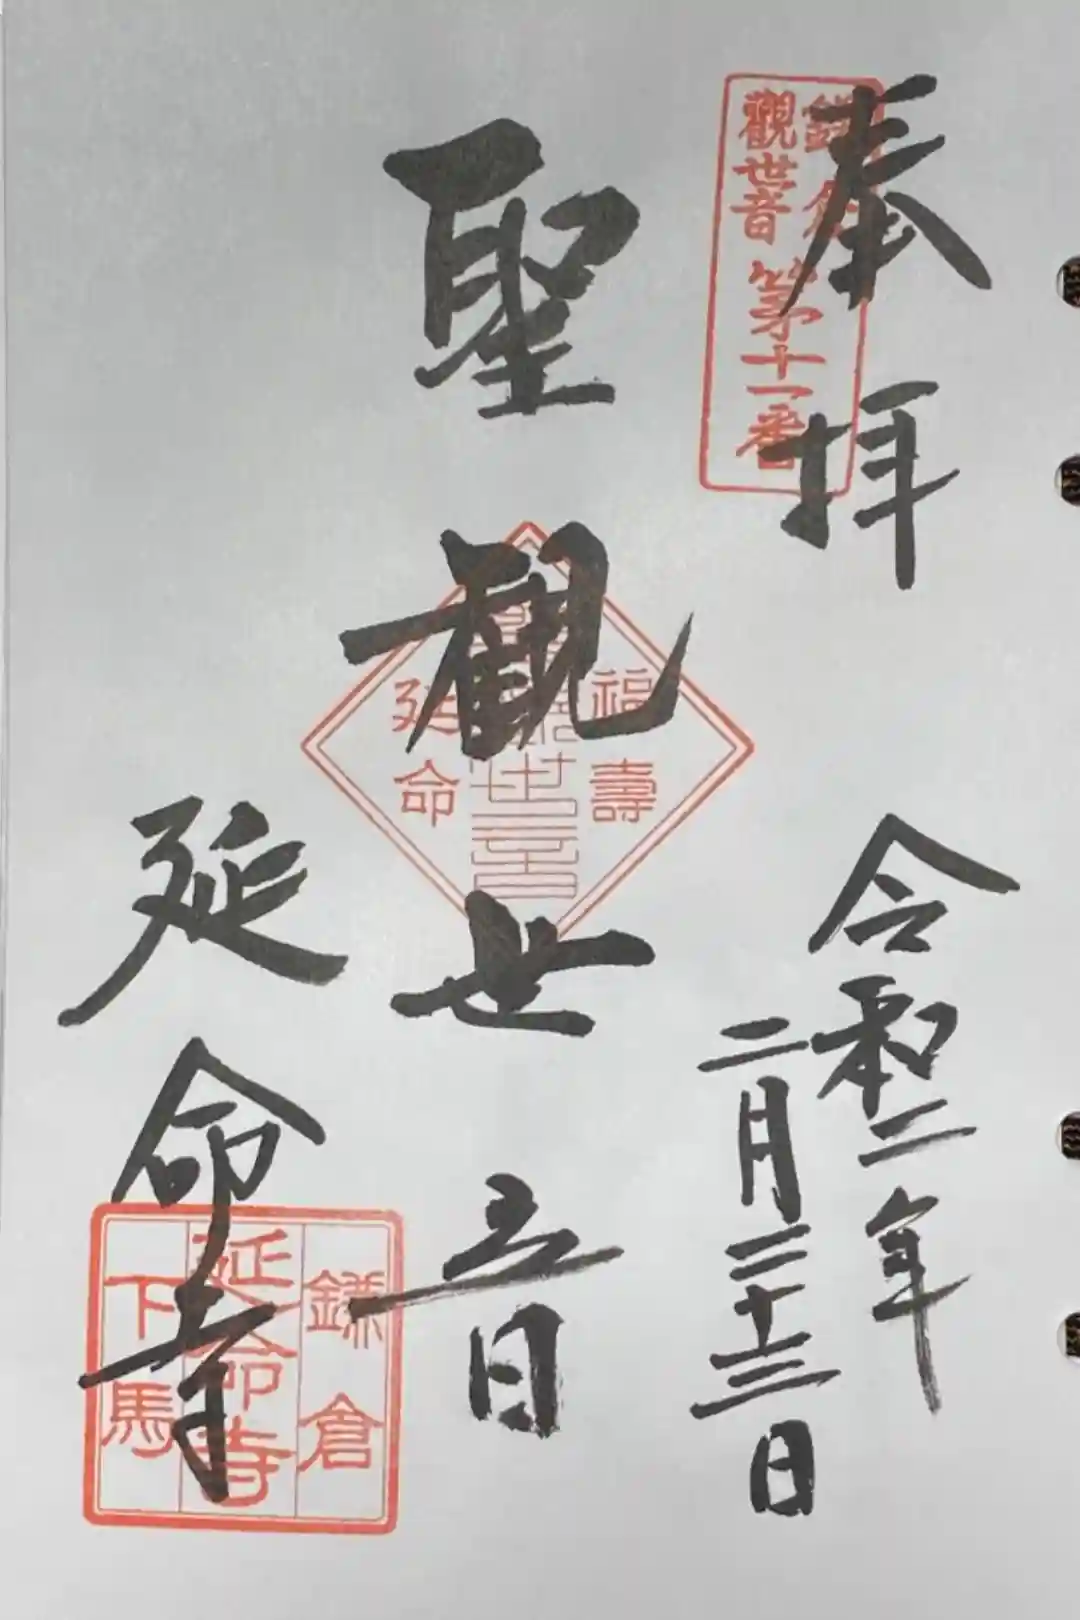 奉拝
鎌倉
觀世音第十一番
令和二年
二月二十三日
聖観世音
福壽
延命
延命寺
鎌倉
延命寺
下馬